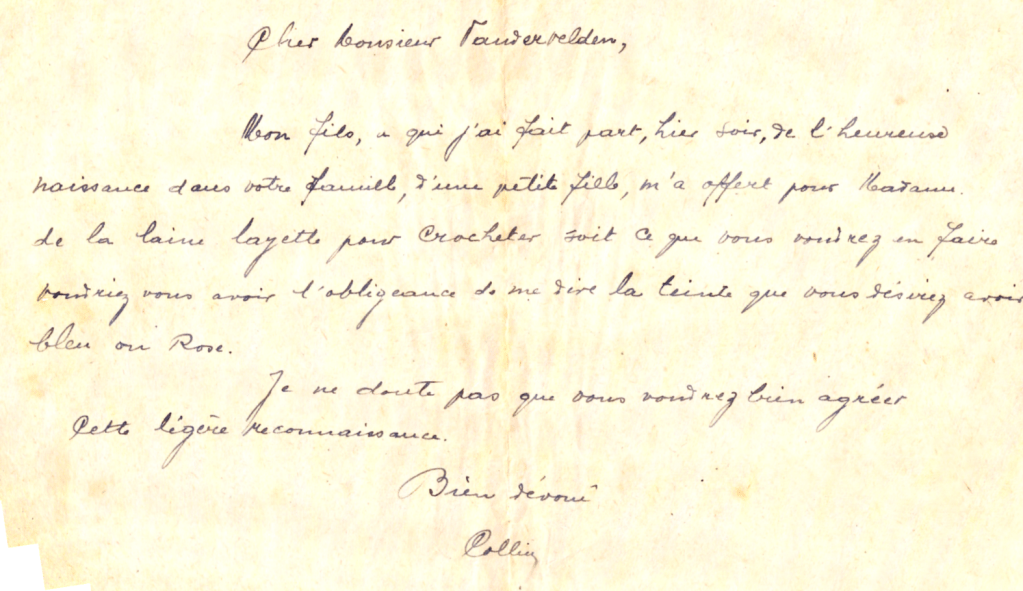 Cher Monsieur Vandervelden,
Mon fils, a qui j'ai fait part, hier soir, de l'heureuse
naissance dans votre famille, d'une petite fille, m'a offert pour Madame.
de la laine layette pour Crocheter soit ce que vous voudrez en faire
voudriez vous avoir l'obligeance de me dire la teinte que vous désirez avoir
bleu ou Rose.
Je ne doute pas que vous voudrez bien agréer
Cette légère reconnaissance.
Bien dévoué
Collin